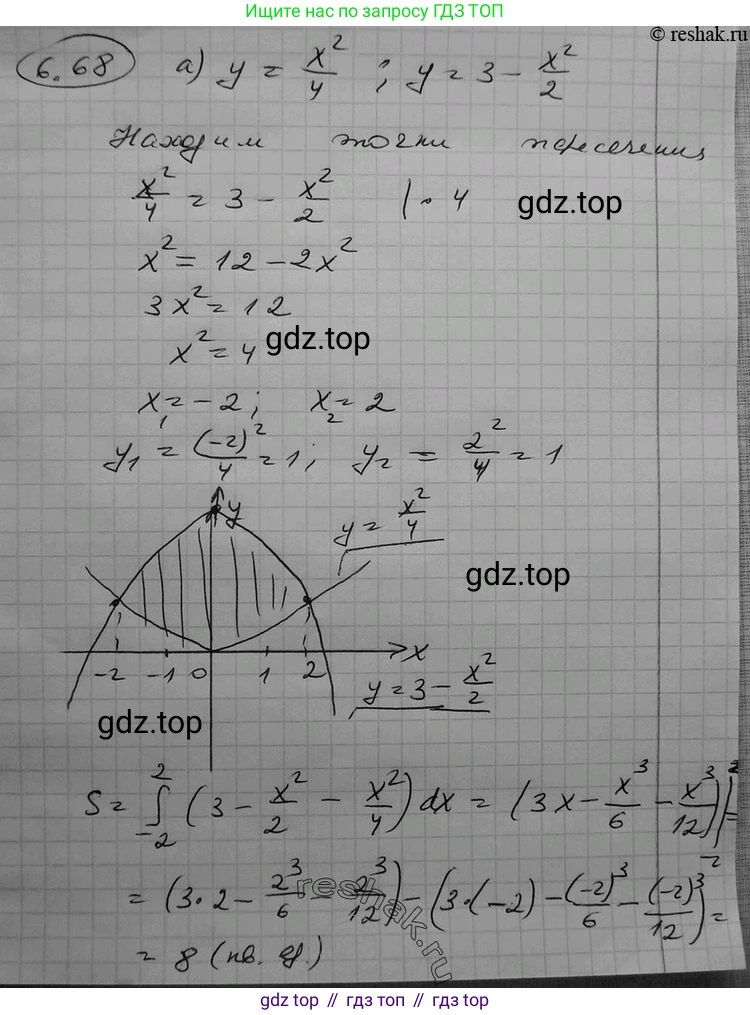 Нужен ответ? Заходи к нам по запросу ГДЗ ТОП
© reshak.ru
6.68 а) y = x²/4 ; y = 3 - x²/2
Находим точки пересечения
x²/4 = 3 - x²/2 | · 4
gdz.top
x² = 12 - 2x²
3x² = 12
gdz.top
x² = 4
x₁ = -2; x₂ = 2
y₁ = (-2)²/4 = 1; y₂ = 2²/4 = 1
y
y = x²/4
gdz.top
x
-2 -1 0 1 2
y = 3 - x²/2
gdz.top
S = ∫₋₂² (3 - x²/2 - x²/4) dx = (3x - x³/6 - x³/12)|₋₂² =
= (3·2 - 2³/6 - 2³/12) - (3·(-2) - (-2)³/6 - (-2)³/12) =
reshak.ru
= 8 (кв. ед.)
gdz.top // гдз топ // gdz top